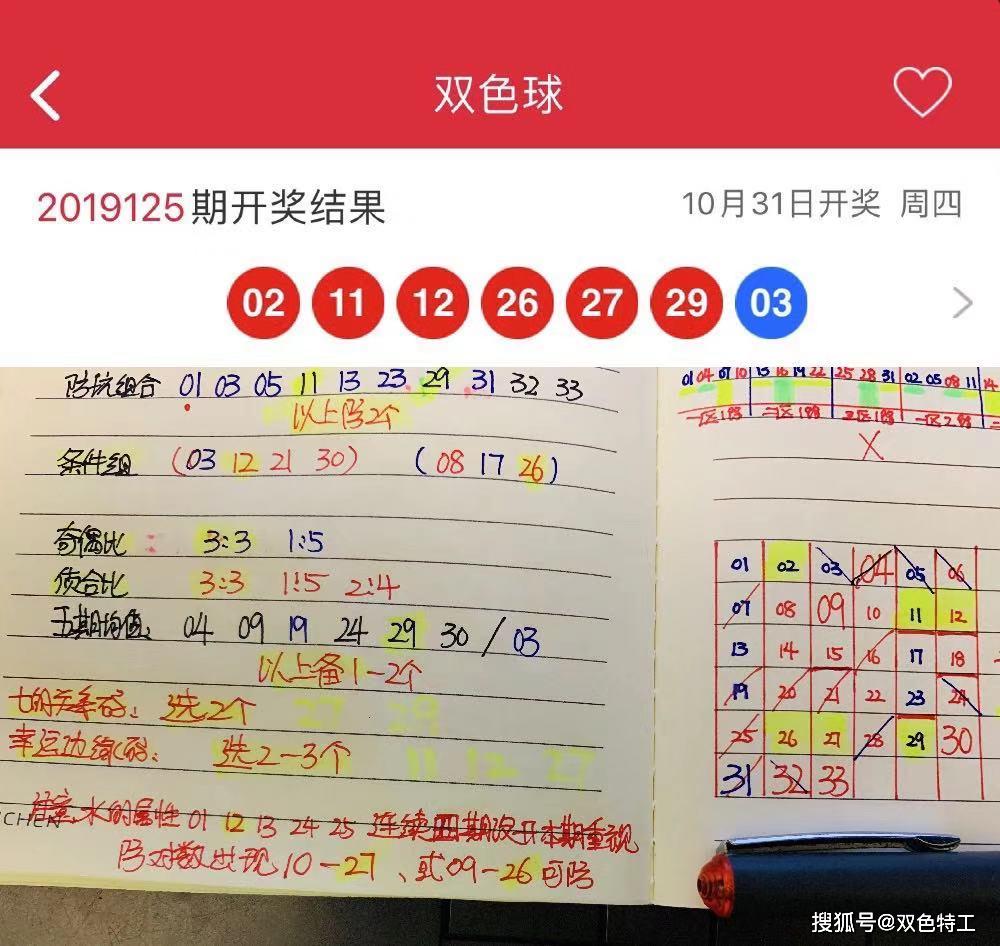 双色球
2019125期开奖结果 10月31日开奖 周四
02 11 12 26 27 29 03
防坑组合 01 03 05 11 13 23 29 31 32 33
以上防2个
条件组 (03 12 21 30) (08 17 26)
奇偶比: 3:3 1:5
质合比 3:3 1:5 2:4
五期均值: 04 09 19 24 29 30 / 03
以上备1-2个
七的关系码: 选2个 27 29
幸运边缘码: 选2-3个 11 12 27
注意:水的属性 01 12 13 24 25 连续四期没开本期重视
防对数出现10-27、或09-26可防
CHEN
01 04 07 10 13 16 19 22 25 28 31 02 05 08 11 14
一区1路 二区1路 三区1路 一区2路
X
01 02 03 04 05 06
07 08 09 10 11 12
13 14 15 16 17 18
19 20 21 22 23 24
25 26 27 28 29 30
31 32 33
搜狐号@双色特工